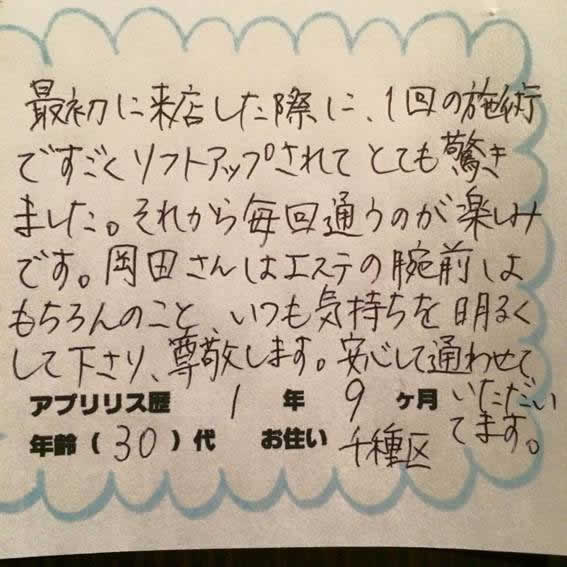 最初に来店した際に、1回の施術
ですごくソフトアップされてとても驚き
ました。それから毎回通うのが楽しみ
です。岡田さんはエステの腕前は
もちろんのこと、いつも気持ちを明るく
して下さり、尊敬します。安心して通わせて
いただい
てます。
アプリリス歴 1 年 9 ヶ月
年齢(30)代 お住い 千種区